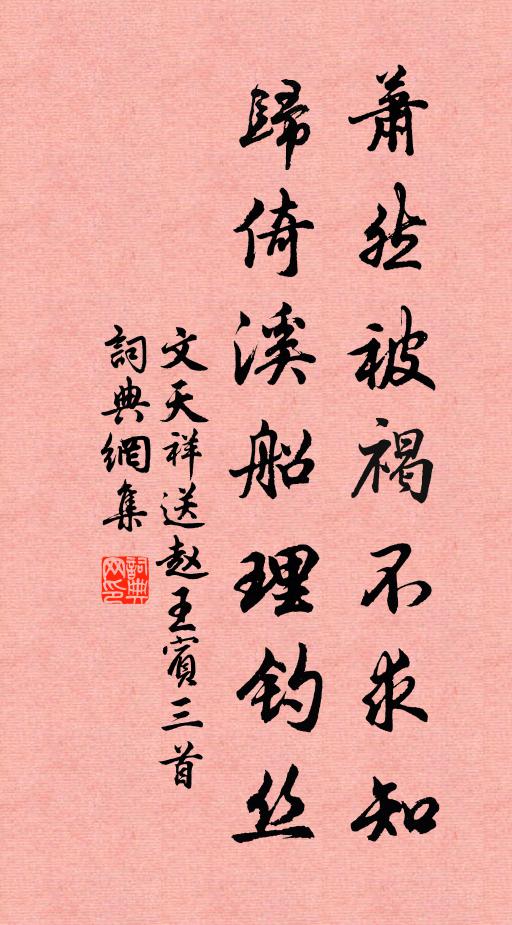 蕭然被褐不求知
歸倚溪船理钓丝
文天祥送赵王賓三首
詞典網集
詞典網印